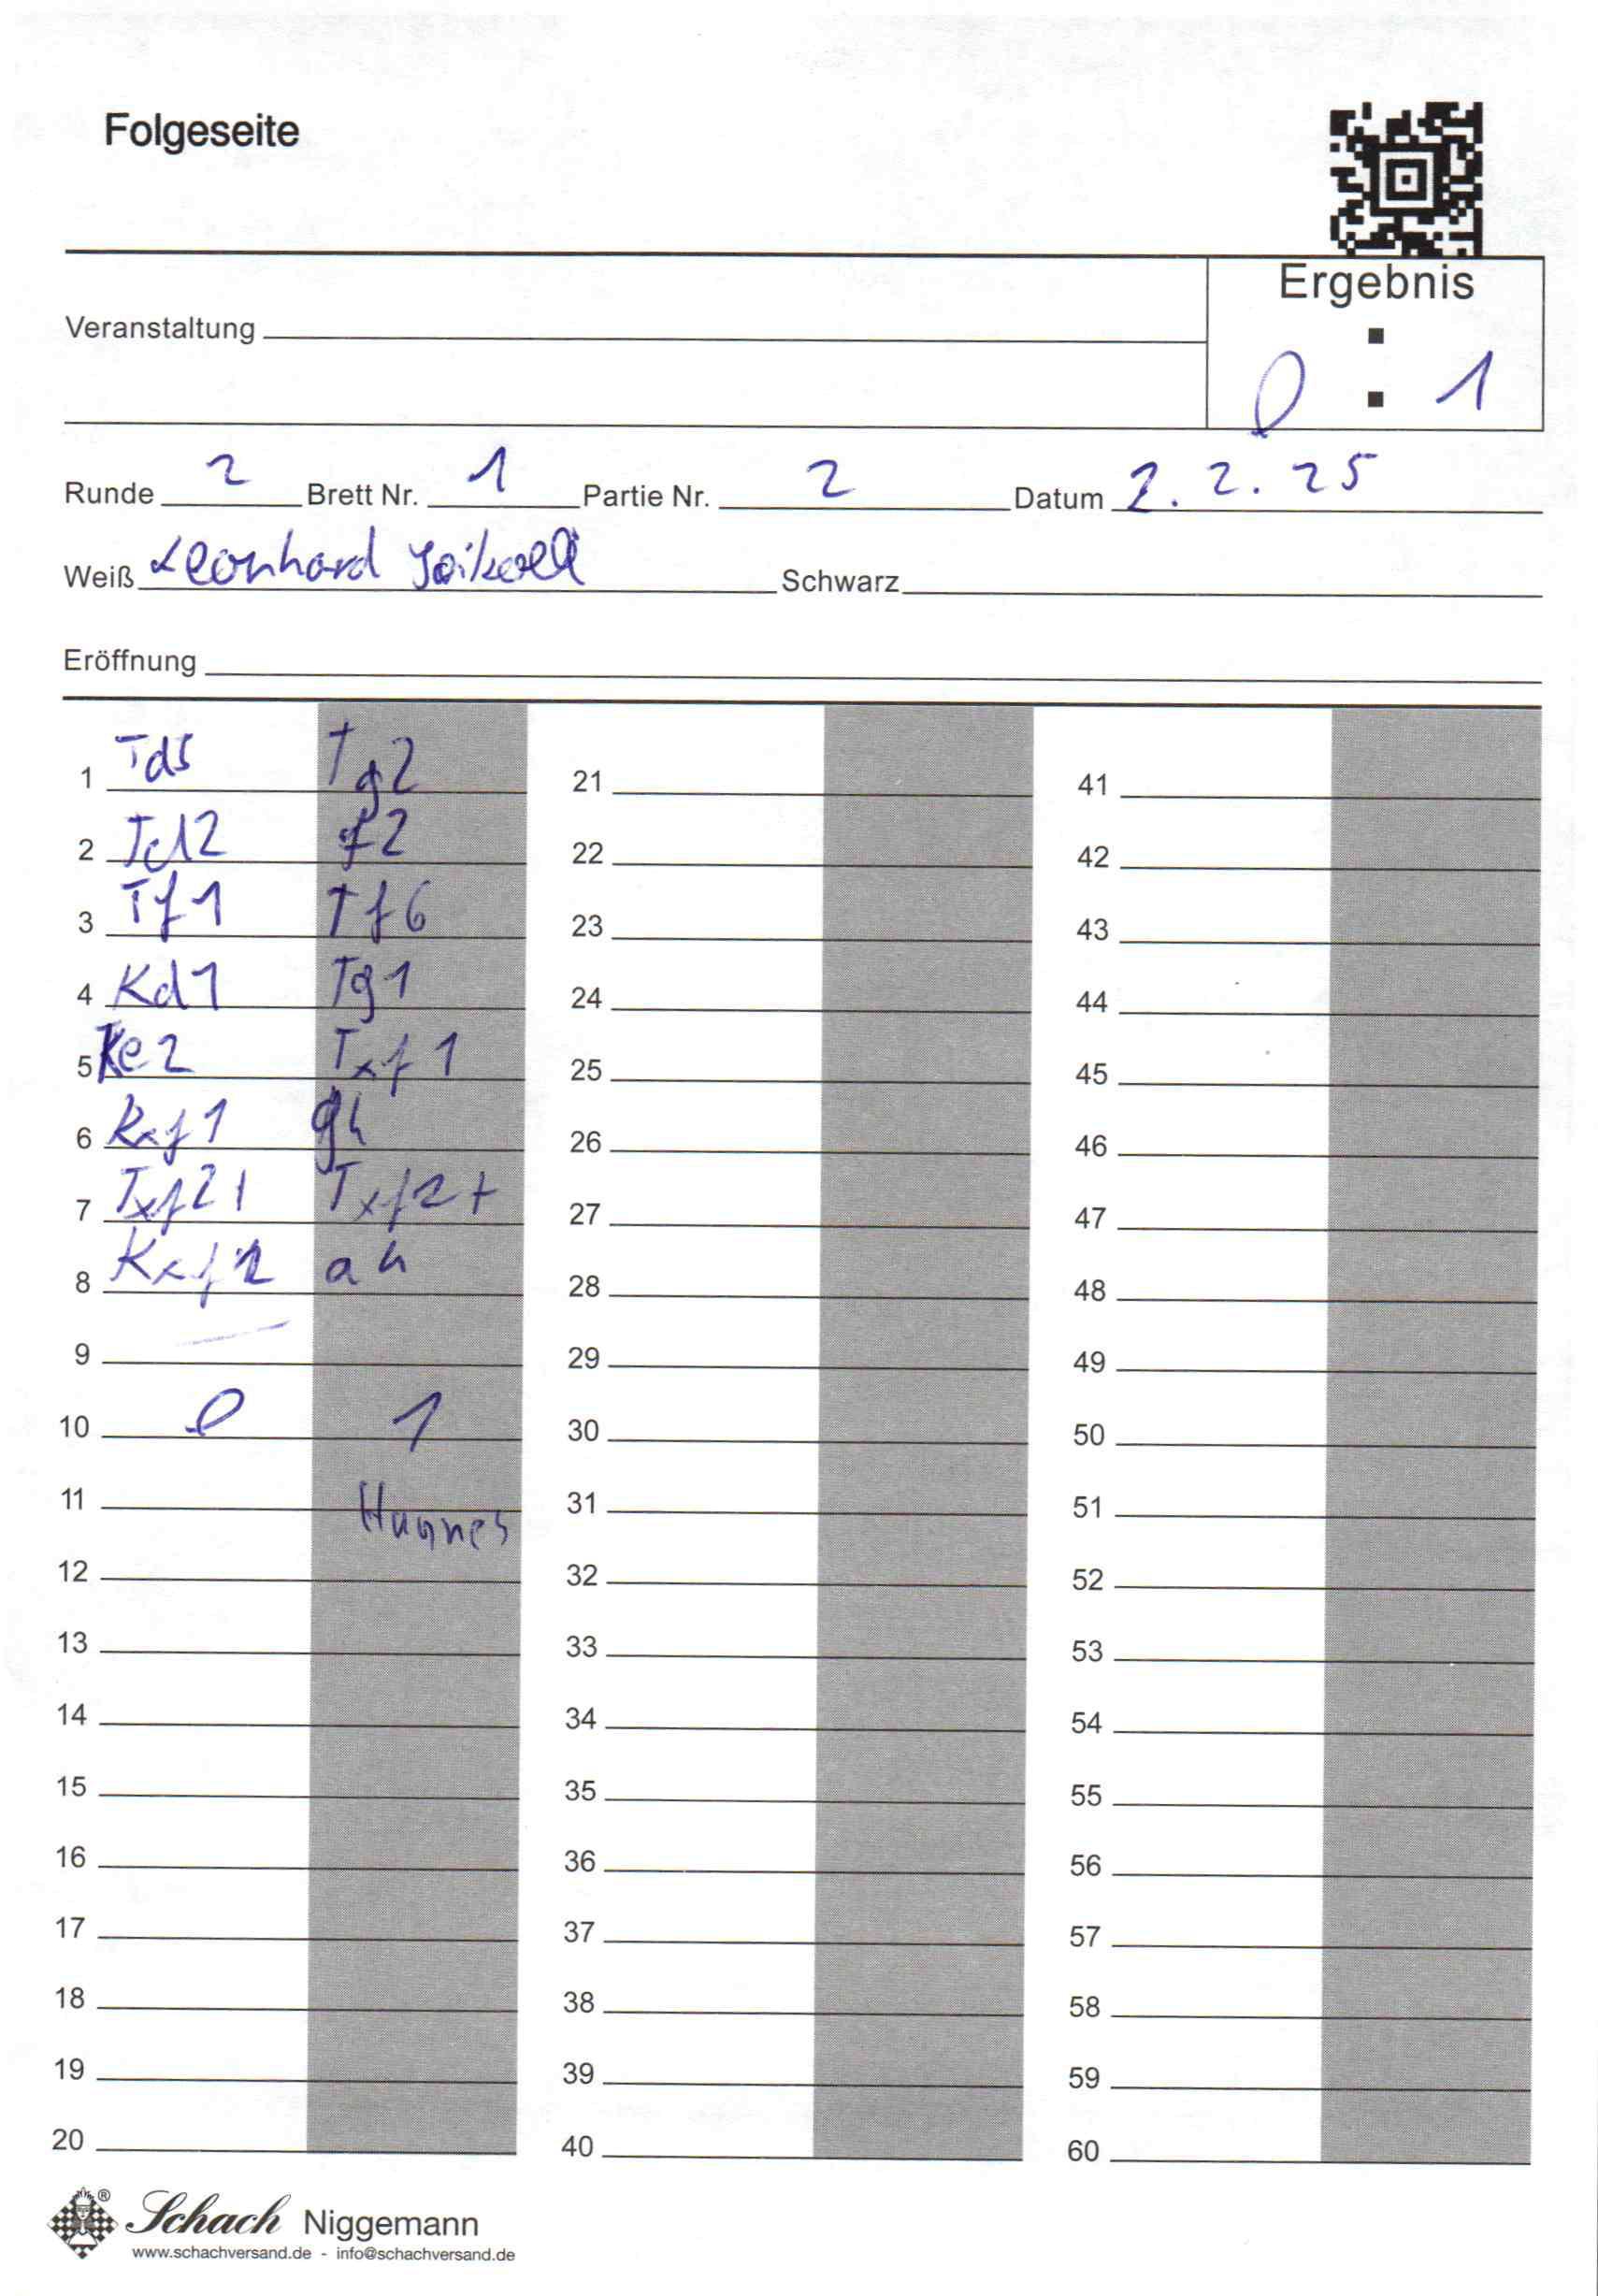 Folgeseite
Ergebnis
Veranstaltung
0 : 1
Runde 2 Brett Nr. 1 Partie Nr. 2 Datum 2.2.25
Weiß Leonhard Schwarz
Eröffnung
1 Td5 Tg2 21 41
2 Td2 f2 22 42
3 Tf1 Tf6 23 43
4 Kd1 Tg1 24 44
5 Ke2 Txf1 25 45
6 Kxf1 g4 26 46
7 Txf2+ Txf2+ 27 47
8 Kxf2 a4 28 48
9 29 49
10 0 1 30 50
11 31 51
12 32 52
13 33 53
14 34 54
15 35 55
16 36 56
17 37 57
18 38 58
19 39 59
20 40 60
Schach Niggemann
www.schachversand.de - info@schachversand.de